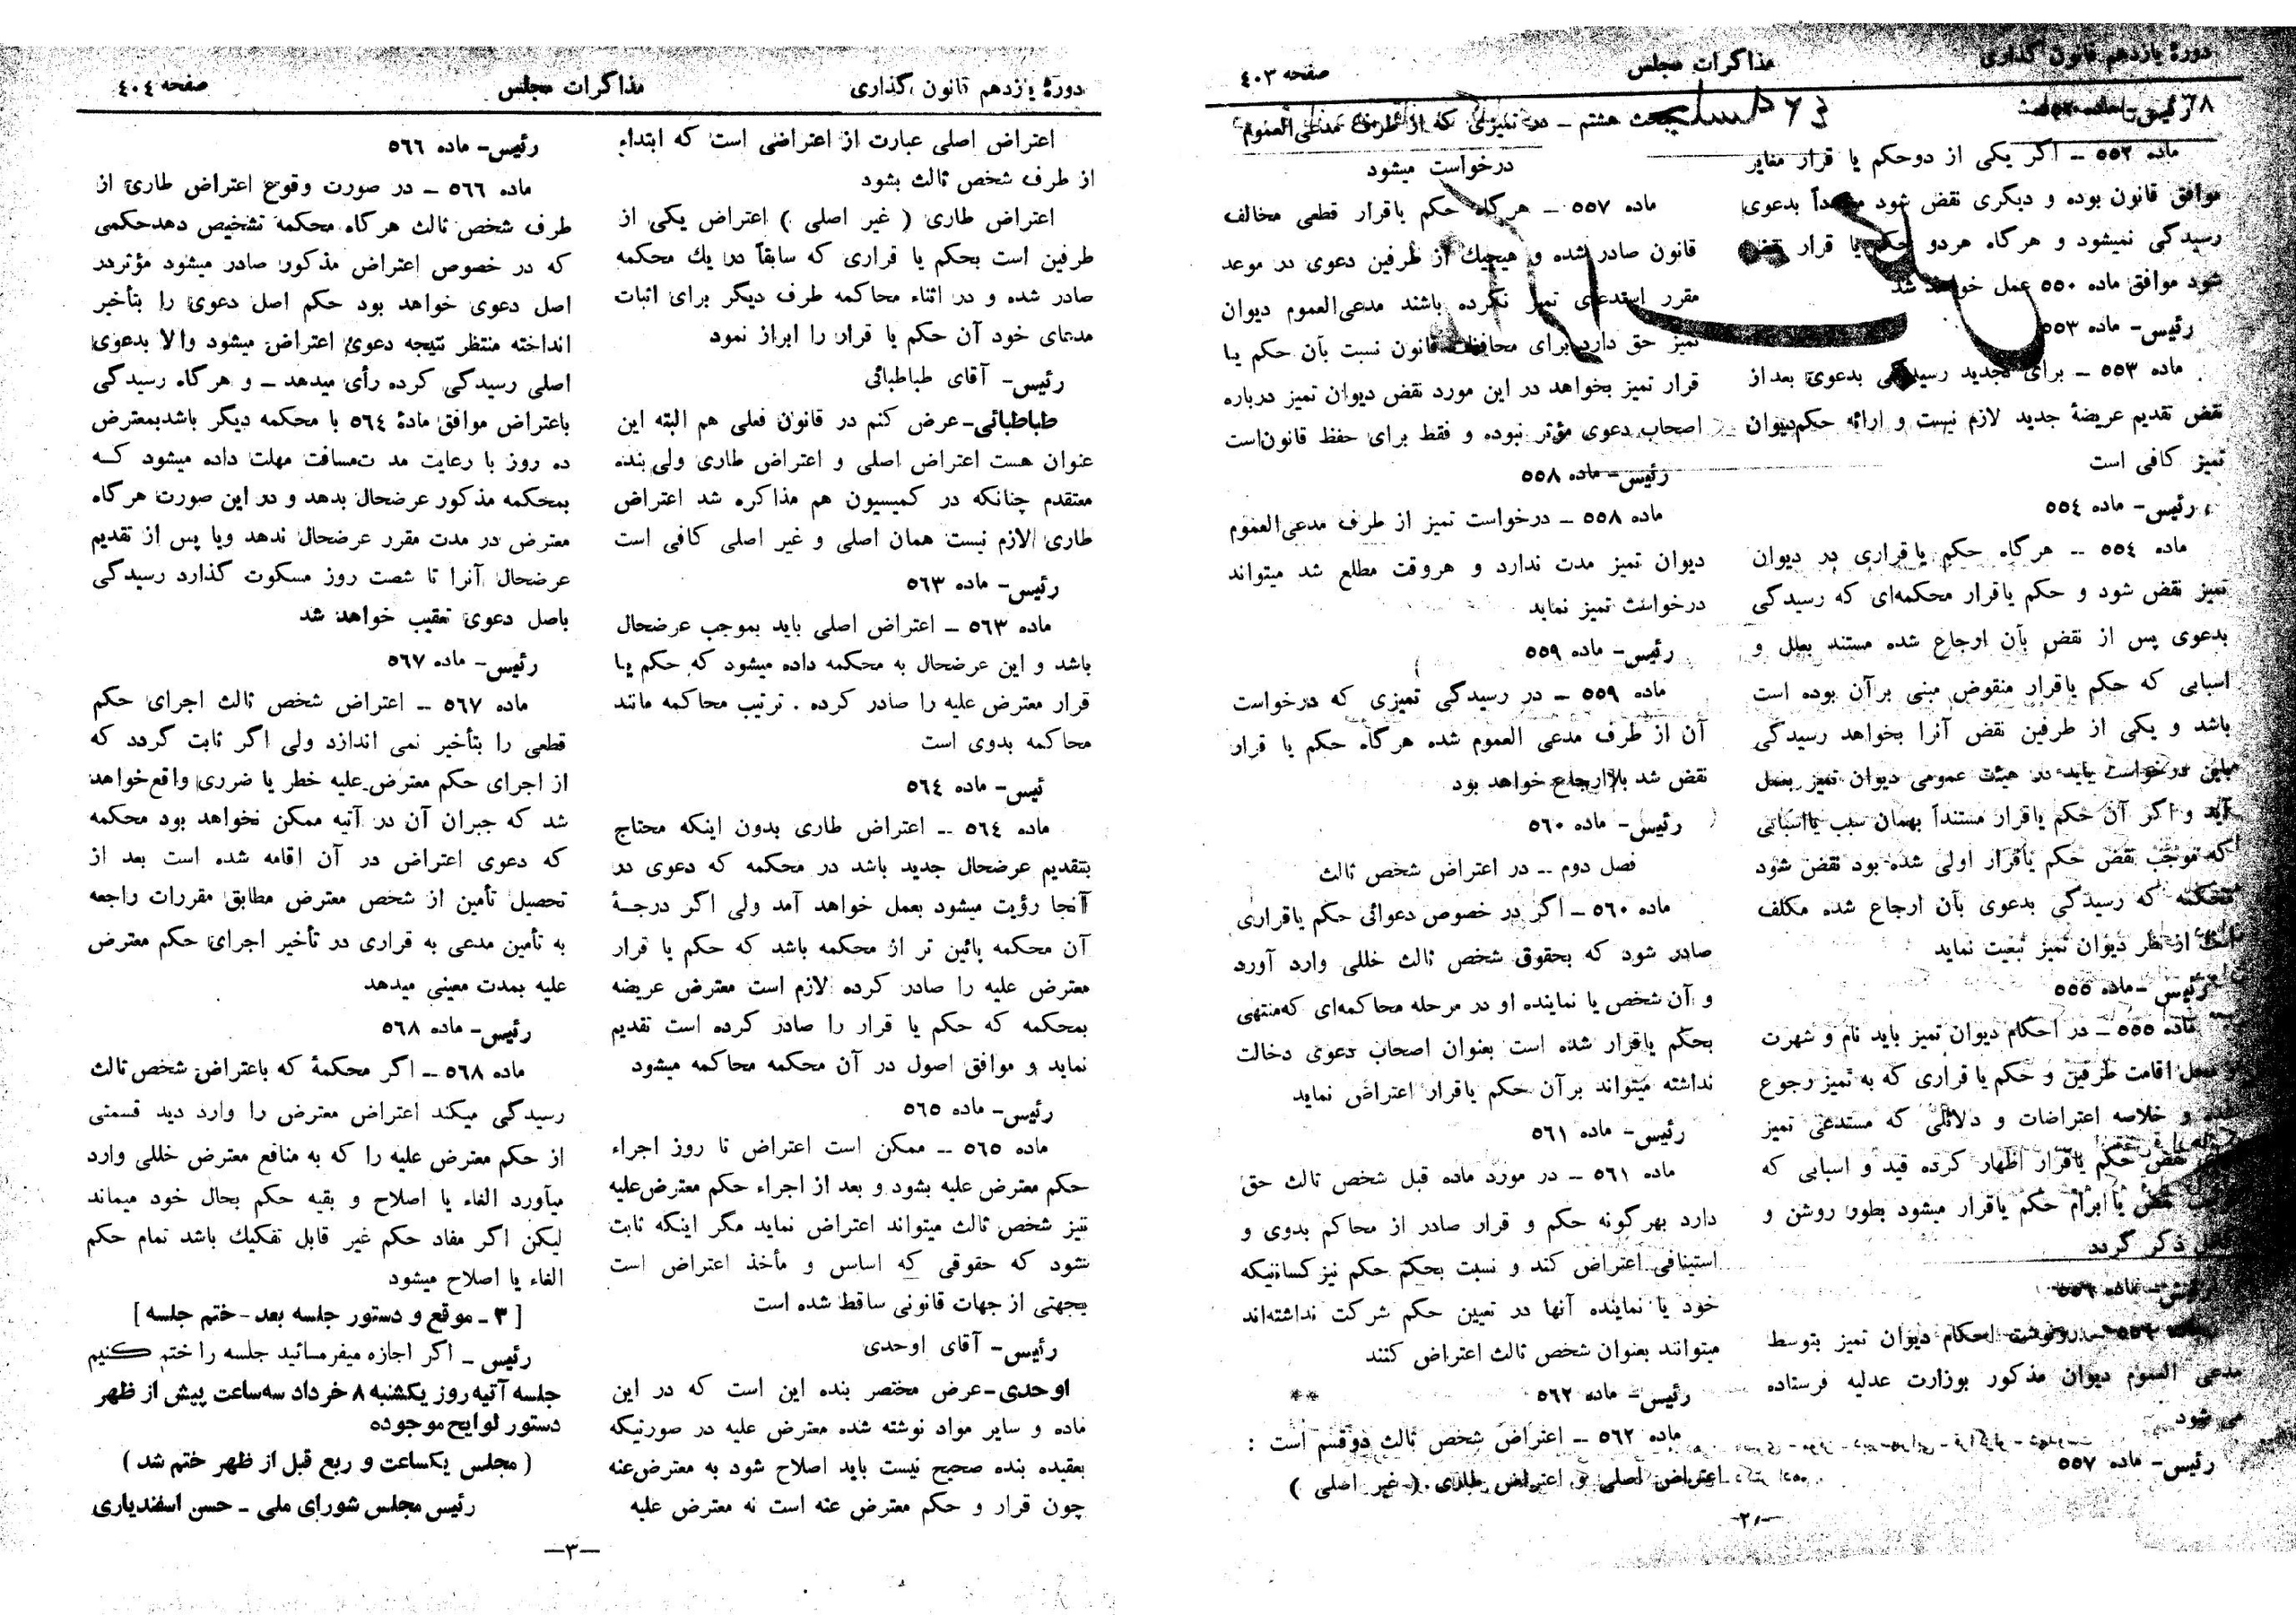 دورهٔ یازدهم قانون گذاری
مذاکرات مجلس
صفحه ٤٠٣
ماده ٥٥٢ ــ اگر یکی از دوحکم یا قرار مغایر
موافق قانون بوده و دیگری نقض شود مجدداً بدعوی
رسیدگی نمیشود و هرگاه هردو حکم یا قرار نقض
شود موافق ماده ٥٥٠ عمل خواهد شد
رئیس- ماده ٥٥٣
ماده ٥٥٣ ــ برای تجدید رسیدگی بدعوی بعداز
نقض تقدیم عریضهٔ جدید لازم نیست و ارائه حکم دیوان
تمیز کافی است
رئیس- ماده ٥٥٤
ماده ٥٥٤ ــ هرگاه حکم یاقراری در دیوان
تمیز نقض شود و حکم یاقرار محکمه‌ای که رسیدگی
بدعوی پس از نقض بآن ارجاع شده مستند بعلل و
اسبابی که حکم یاقرار منقوض مبنی برآن بوده است
باشد و یکی از طرفین نقض آنرا بخواهد رسیدگی
باین درخواست باید در هیئت عمومی دیوان تمیز بعمل
آید و اگر آن حکم یاقرار مستنداً بهمان سبب یااسبابی
که موجب نقض حکم یاقرار اولی شده بود نقض شود
محکمه که رسیدگی بدعوی بآن ارجاع شده مکلف
است از نظر دیوان تمیز تبعیت نماید
رئیس- ماده ٥٥٥
ماده ٥٥٥ ــ در احکام دیوان تمیز باید نام و شهرت
و محل اقامت طرفین و حکم یا قراری که به تمیز رجوع
شده و خلاصه اعتراضات و دلائلی که مستدعی تمیز
نقض حکم یاقرار اظهار کرده قید و اسبابی که
نقض یا ابرام حکم یاقرار میشود بطور روشن و
ذکر گردد
رئیس- ماده ٥٥٦
ماده ٥٥٦ ــ رونوشت احکام دیوان تمیز بتوسط
مدعی العموم دیوان مذکور بوزارت عدلیه فرستاده
می شود
رئیس- ماده ٥٥٧
مبحث هشتم ــ در تمیزی که از طرف مدعی‌العموم
درخواست میشود
ماده ٥٥٧ ــ هرگاه حکم یاقرار قطعی مخالف
قانون صادر شده و هیچیك از طرفین دعوی در موعد
مقرر استدعای تمیز نکرده باشند مدعی‌العموم دیوان
تمیز حق دارد برای محافظت قانون نسبت بآن حکم یا
قرار تمیز بخواهد در این مورد نقض دیوان تمیز درباره
اصحاب دعوی مؤثر نبوده و فقط برای حفظ قانون‌است
رئیس- ماده ٥٥٨
ماده ٥٥٨ ــ درخواست تمیز از طرف مدعی‌العموم
دیوان تمیز مدت ندارد و هروقت مطلع شد میتواند
درخواست تمیز نماید
رئیس- ماده ٥٥٩
ماده ٥٥٩ ــ در رسیدگی تمیزی که درخواست
آن از طرف مدعی العموم شده هرگاه حکم یا قرار
نقض شد بلاارجاع خواهد بود
رئیس- ماده ٥٦٠
فصل دوم ــ در اعتراض شخص ثالث
ماده ٥٦٠ ــ اگر در خصوص دعوائی حکم یاقراری
صادر شود که بحقوق شخص ثالث خللی وارد آورد
و آن شخص یا نماینده او در مرحله محاکمه‌ای که‌منتهی
بحکم یاقرار شده است بعنوان اصحاب دعوی دخالت
نداشته میتواند برآن حکم یاقرار اعتراض نماید
رئیس- ماده ٥٦١
ماده ٥٦١ ــ در مورد ماده قبل شخص ثالث حق
دارد بهرگونه حکم و قرار صادر از محاکم بدوی و
استینافی اعتراض کند و نسبت بحکم حکم نیز کسانیکه
خود یا نماینده آنها در تعیین حکم شرکت نداشته‌اند
میتوانند بعنوان شخص ثالث اعتراض کنند
رئیس- ماده ٥٦٢
**
ماده ٥٦٢ ــ اعتراض شخص ثالث دوقسم است :
اعتراض اصلی و اعتراض طاری ( غیر اصلی )
–٢–
دورهٔ یازدهم قانون گذاری
مذاکرات مجلس
صفحه ٤٠٤
اعتراض اصلی عبارت از اعتراضی است که ابتداء
از طرف شخص ثالث بشود
اعتراض طاری ( غیر اصلی ) اعتراض یکی از
طرفین است بحکم یا قراری که سابقاً در یك محکمه
صادر شده و در اثناء محاکمه طرف دیگر برای اثبات
مدعای خود آن حکم یا قرار را ابراز نمود
رئیس- آقای طباطبائی
طباطبائی-عرض کنم در قانون فعلی هم البته این
عنوان هست اعتراض اصلی و اعتراض طاری ولی بنده
معتقدم چنانکه در کمیسیون هم مذاکره شد اعتراض
طاری لازم نیست همان اصلی و غیر اصلی کافی است
رئیس- ماده ٥٦٣
ماده ٥٦٣ ــ اعتراض اصلی باید بموجب عرضحال
باشد و این عرضحال به محکمه داده میشود که حکم یا
قرار معترض علیه را صادر کرده . ترتیب محاکمه مانند
محاکمه بدوی است
ئیس- ماده ٥٦٤
ماده ٥٦٤ ــ اعتراض طاری بدون اینکه محتاج
بتقدیم عرضحال جدید باشد در محکمه که دعوی در
آنجا رؤیت میشود بعمل خواهد آمد ولی اگر درجـهٔ
آن محکمه پائین تر از محکمه باشد که حکم یا قرار
معترض علیه را صادر کرده لازم است معترض عریضه
بمحکمه که حکم یا قرار را صادر کرده است تقدیم
نماید و موافق اصول در آن محکمه محاکمه میشود
رئیس- ماده ٥٦٥
ماده ٥٦٥ ــ ممکن است اعتراض تا روز اجراء
حکم معترض علیه بشود و بعد از اجراء حکم معترض‌علیه
نیز شخص ثالث میتواند اعتراض نماید مگر اینکه ثابت
شود که حقوقی که اساس و مأخذ اعتراض است
بجهتی از جهات قانونی ساقط شده است
رئیس- آقای اوحدی
اوحدی-عرض مختصر بنده این است که در این
ماده و سایر مواد نوشته شده معترض علیه در صورتیکه
بعقیده بنده صحیح نیست باید اصلاح شود به معترض‌عنه
چون قرار و حکم معترض عنه است نه معترض علیه
رئیس- ماده ٥٦٦
ماده ٥٦٦ ــ در صورت وقوع اعتراض طاری از
طرف شخص ثالث هرگاه محکمه تشخیص دهدحکمی
که در خصوص اعتراض مذکور صادر میشود مؤثردر
اصل دعوی خواهد بود حکم اصل دعوی را بتأخیر
انداخته منتظر نتیجه دعوی اعتراض میشود والا بدعوی
اصلی رسیدگی کرده رأی میدهد ــ و هرگاه رسیدگی
باعتراض موافق مادهٔ ٥٦٤ با محکمه دیگر باشدبمعترض
ده روز با رعایت مد ت‌مسافت مهلت داده میشود کـه
بمحکمه مذکور عرضحال بدهد و در این صورت هرگاه
معترض در مدت مقرر عرضحال ندهد ویا پس از تقدیم
عرضحال آنرا تا شصت روز مسکوت گذارد رسیدگی
باصل دعوی تعقیب خواهد شد
رئیس- ماده ٥٦٧
ماده ٥٦٧ ــ اعتراض شخص ثالث اجرای حکم
قطعی را بتأخیر نمی اندازد ولی اگر ثابت گردد که
از اجرای حکم معترض‌علیه خطر یا ضرری واقع‌خواهد
شد که جبران آن در آتیه ممکن نخواهد بود محکمه
که دعوی اعتراض در آن اقامه شده است بعد از
تحصیل تأمین از شخص معترض مطابق مقررات راجعه
به تأمین مدعی به قراری در تأخیر اجرای حکم معترض
علیه بمدت معینی میدهد
رئیس- ماده ٥٦٨
ماده ٥٦٨ ــ اگر محکمهٔ که باعتراض شخص ثالث
رسیدگی میکند اعتراض معترض را وارد دید قسمتی
از حکم معترض علیه را که به منافع معترض خللی وارد
میآورد الغاء یا اصلاح و بقیه حکم بحال خود میماند
لیکن اگر مفاد حکم غیر قابل تفکیك باشد تمام حکم
الغاء یا اصلاح میشود
[ ٣ ــ موقع و دستور جلسه بعد - ختم جلسه ]
رئیس ــ اگر اجازه میفرمائید جلسه را ختم کنیم
جلسه آتیه روز یکشنبه ٨ خرداد سه‌ساعت پیش از ظهر
دستور لوایح موجوده
( مجلس یکساعت و ربع قبل از ظهر ختم شد )
رئیس مجلس شورای ملی ــ حسن اسفندیاری
–٣–